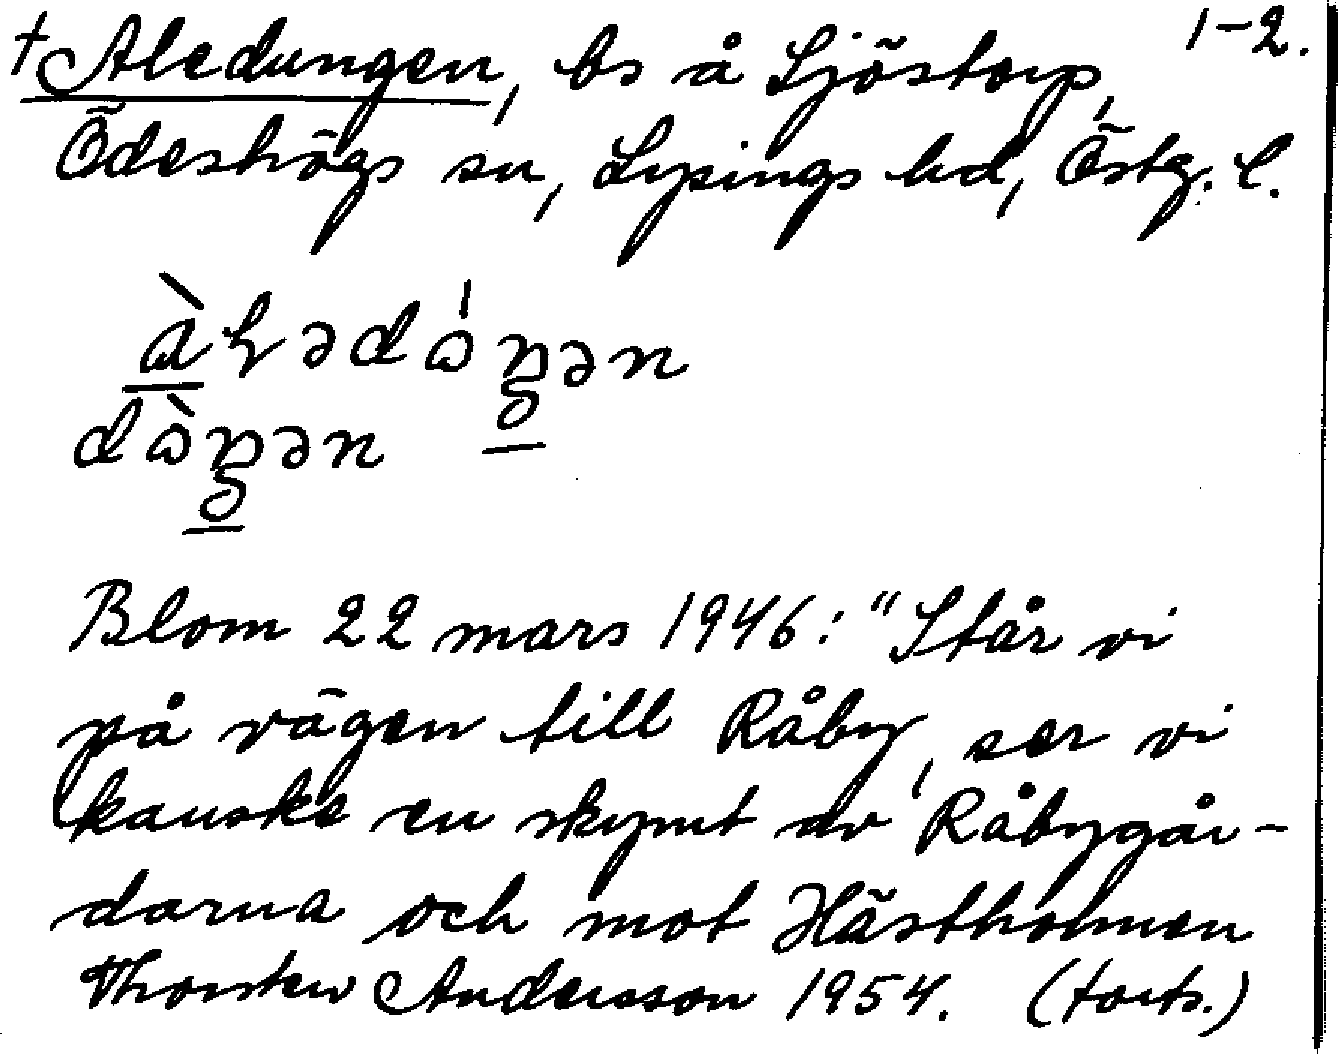 † Aledungen, bs å Sjöstorp, 1-2.
Ödeshögs sn, Lysings hd, Östg. l.
dòŋən
Blom 22 mars 1946: "Står vi
på vägen till Råby, ser vi
kanske en skymt av Råbygår-
darna och mot Hästholmen
Thorsten Andersson 1954. (forts.)